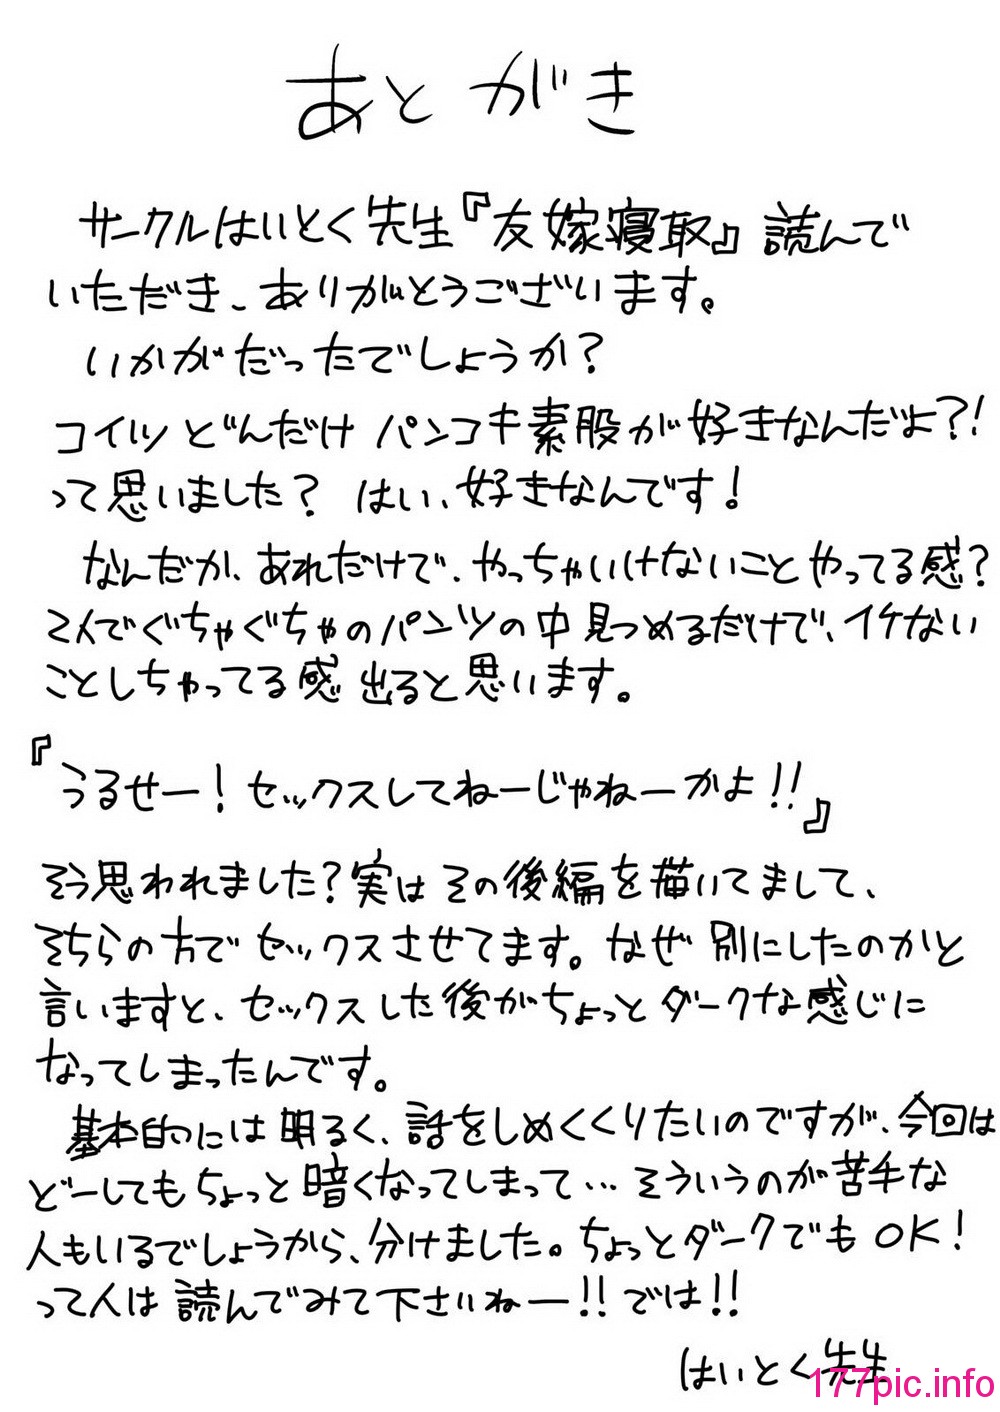 あとがき
サークルはいとく先生『友嫁寝取』読んで
いただき、ありがとうございます。
いかがだったでしょうか?
コイツどんだけパンコキ素股が好きなんだよ?!
って思いました? はい、好きなんです!
なんだか、あれだけで、やっちゃいけないことやってる感?
2人でぐちゃぐちゃのパンツの中見つめるだけで、イケない
ことしちゃってる感出ると思います。
『うるせー!セックスしてねーじゃねーかよ!!』
そう思われました?実はその後編を描いてまして、
そちらの方でセックスさせてます。なぜ別にしたのかと
言いますと、セックスした後がちょっとダークな感じに
なってしまったんです。
基本的には明るく、話をしめくくりたいのですが、今回は
どーしてもちょっと暗くなってしまって…そういうのが苦手な
人もいるでしょうから、分けました。ちょっとダークでもOK!
って人は読んでみて下さいねー!!では!!
はいとく先生
177pic.info